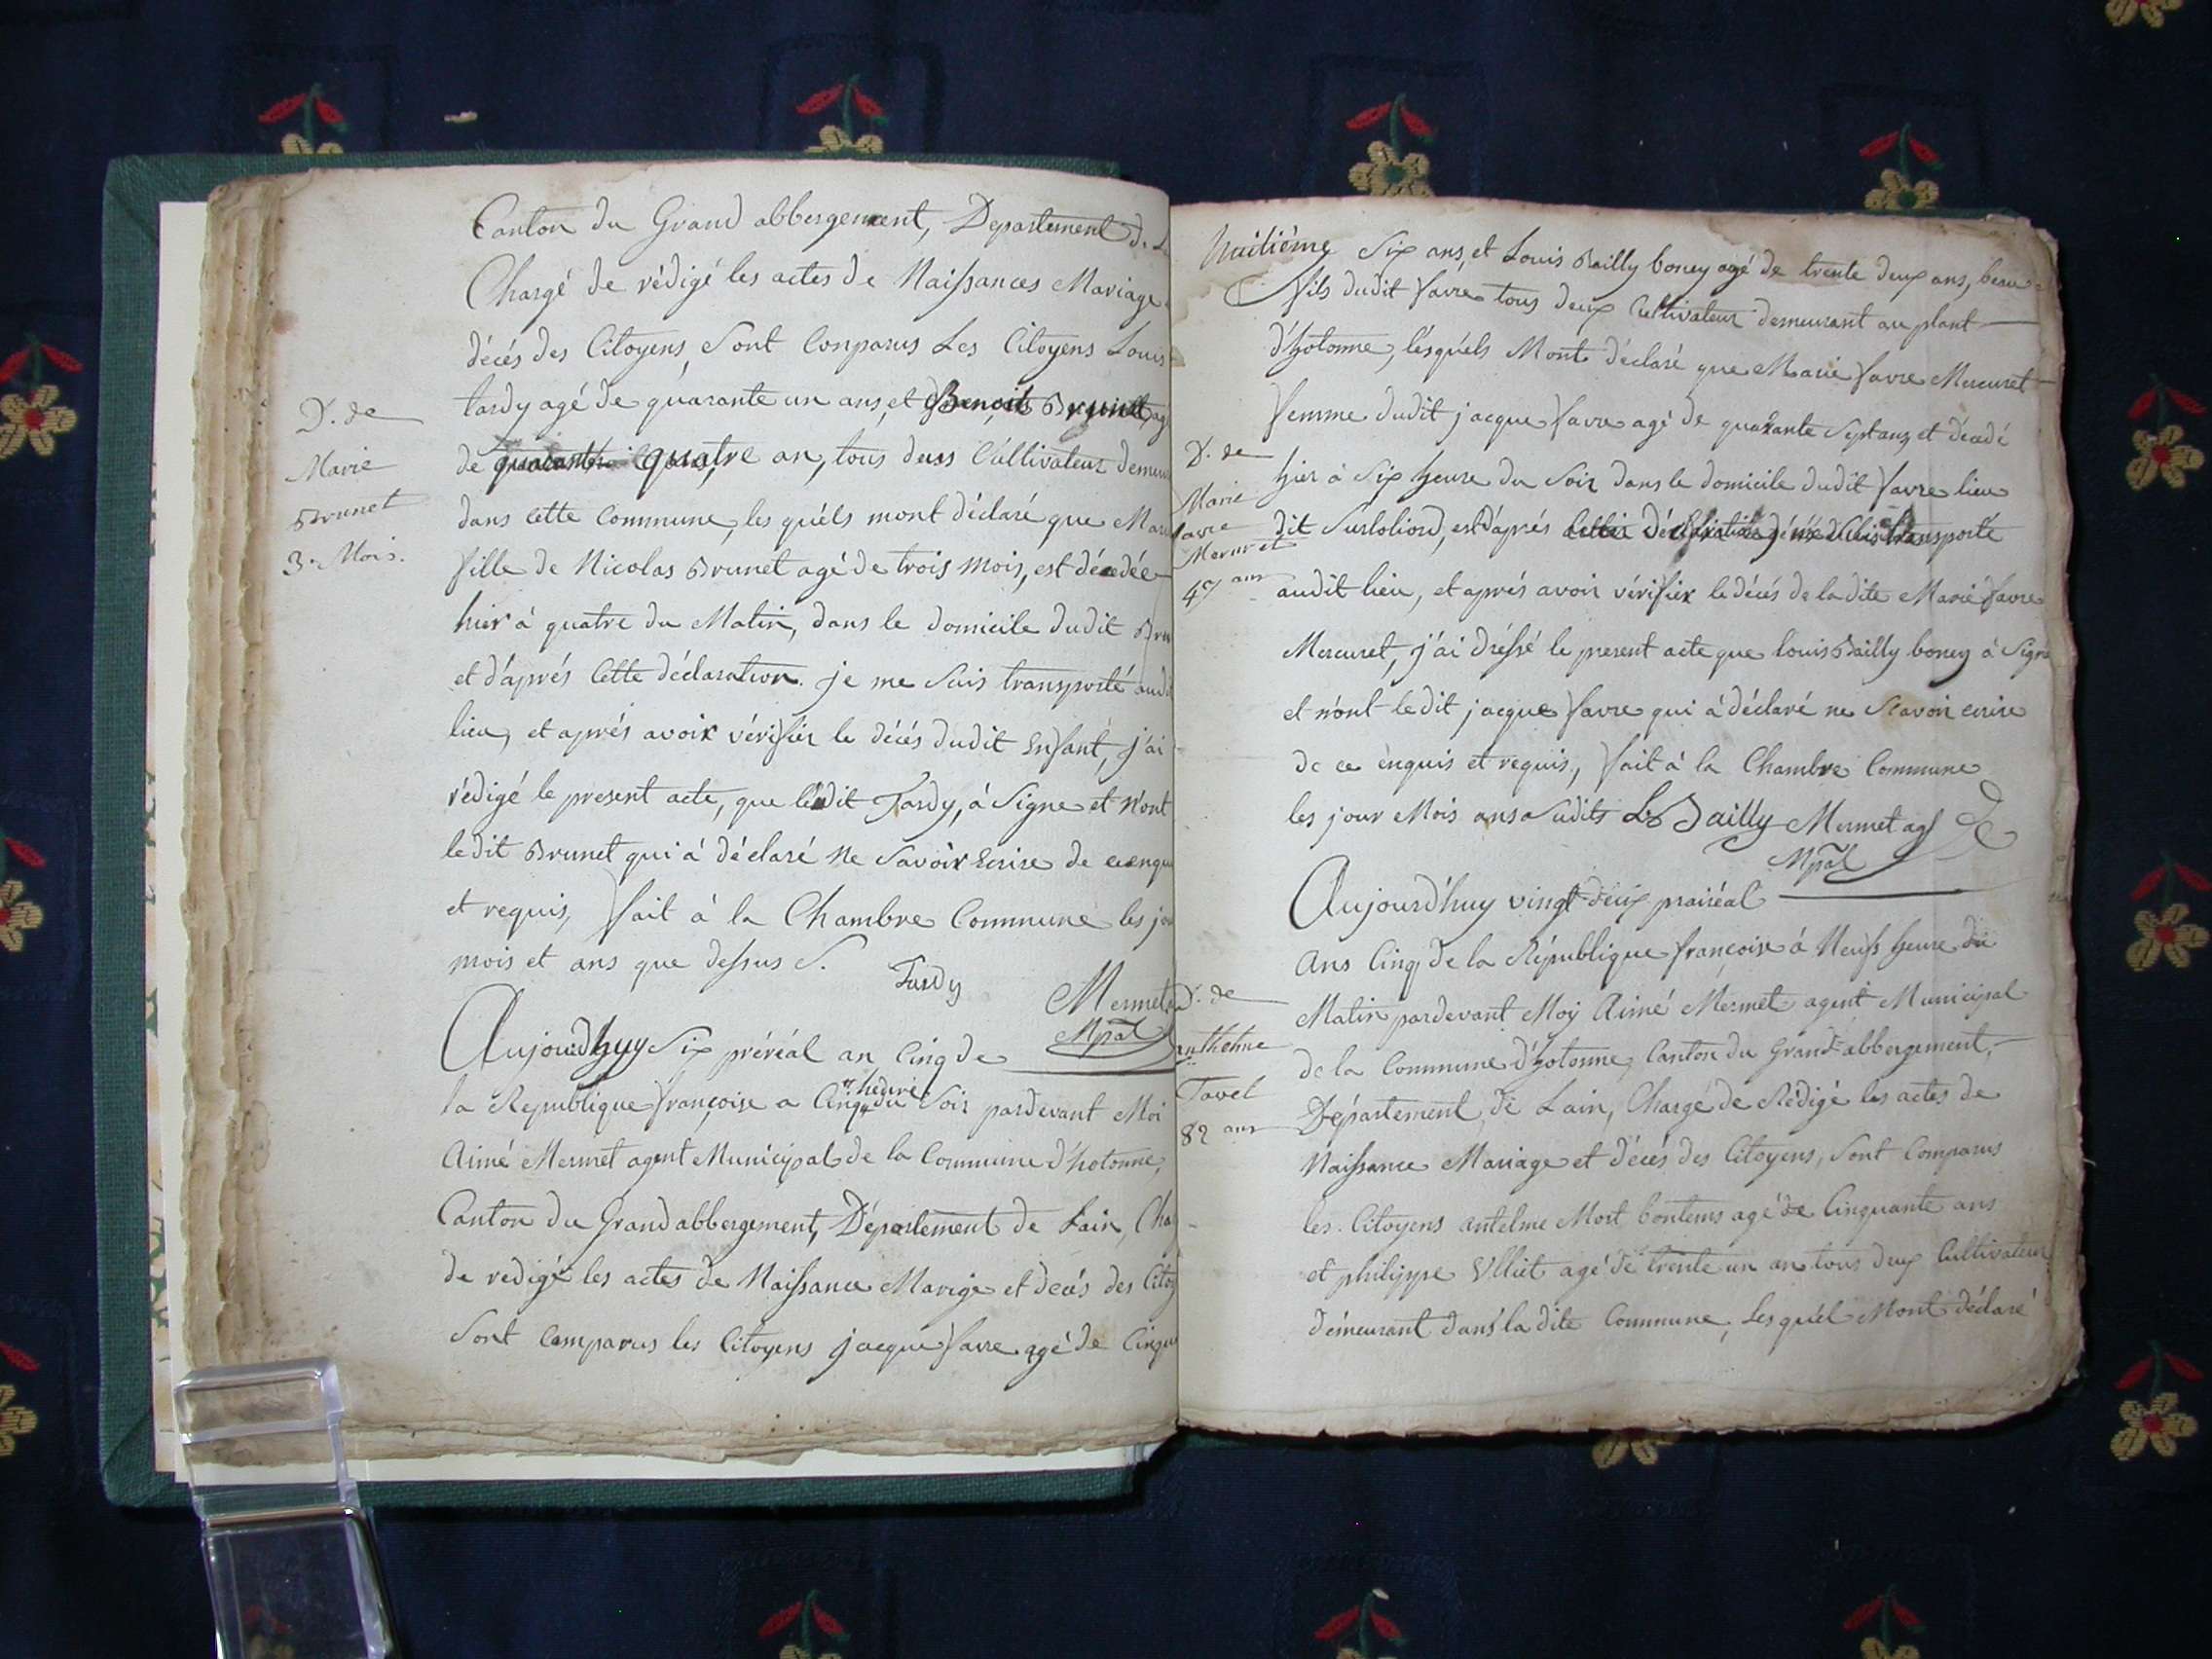 Canton du Grand abbergement, Departement de
Chargé de rédigé les actes de Naissances Mariage
décés des Citoyens, Sont Conparus Les Citoyens Louis
tardy agé de quarante un ans, et Benoit Brunet
de quatre an, tous deus Cultivateur
dans cette Commune, les quéls mont déclaré que
fille de Nicolas Brunet agé de trois mois, est décedée
hier à quatre du Matin, dans le domicile dudit
et d'aprés Cette déclaration. je me Suis transporté
lieu, et aprés avoir vérifier le décés dudit Enfant, j'ai
rédigé le present acte, que ledit Tardy, à Signe et N'ont
ledit Brunet qui à déclaré Ne Savoir Ecrire de
et requis, fait à la Chambre Commune les
mois et ans que dessus S.
Tardy
Mermet
Mpal
Aujourdhuy Six préréal an Cinq de
la Republique françoise a Cinq heure du Soir pardevant Moi
Aimé Mermet agent Municipal de la Commune d'hotonne,
Canton du Grand abbergement, Département de Lain,
de redigé les actes de Naissance Marige et decés des
Sont Comparus les Citoyens jacque favre agé de
D. de
Marie
Brunet
3. Mois.
huitième Six ans, et Louis Bailly boney agé de trente deux ans, beau
fils dudit favre tous deux Cultivateur demeurant au plant
d'hotonne, lesquéls Mont déclaré que Marie favre Mercuret
femme dudit jacque favre agé de quarante Sept ans, et decedé
hier à Six heure du Soir dans le domicile dudit favre lieu
dit, est d'aprés transporté
audit lieu, et aprés avoir vérifier le décés de la dite Marie favre
Mercuret, j'ai dréssé le present acte que louis Bailly boney à Signé
et n'ont le dit jacque favre qui à déclaré ne Scavoir ecrire
de ce enquis et requis, fait à la Chambre Commune
les jour Mois ans Sudits Ls Bailly Mermet ag
Mpal
Aujourd'huy vingt deux prairéal
Ans Cinq de la République françoise à Neufs heure du
Matin pardevant Moy Aimé Mermet agent Municipal
de la Commune d'hotonne, Canton du Grand abbergement,
Département de Lain, Chargé de Rédigé les actes de
Naissance Mariage et décés des Citoyens, Sont Comparus
les Citoyens antelme Mort bontems agé de Cinquante ans
et philippe Ulliet agé de trente un an tous deux Cultivateur
démeurant dans la dite Commune, Les quél Mont déclaré
D. de
Marie
favre
Mercuret
47 ans
D. de
Tavel
82 ans